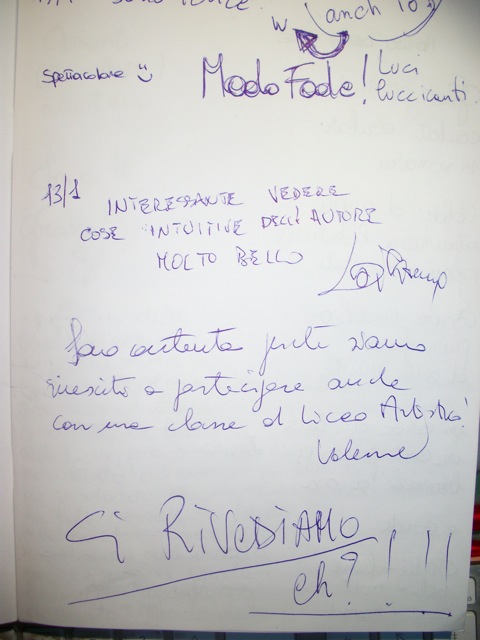 anch io
W
Spettacolare
Modo Fade! Luci
luccicanti
13/1 INTERESSANTE VEDERE
COSE INTUITIVE DELL'AUTORE
MOLTO BELLO
Sono contenta perchè siamo
riusciti a partecipare anche
con una classe di Liceo Artistico!
Ci RiVeDiAMO
eh?!!!!